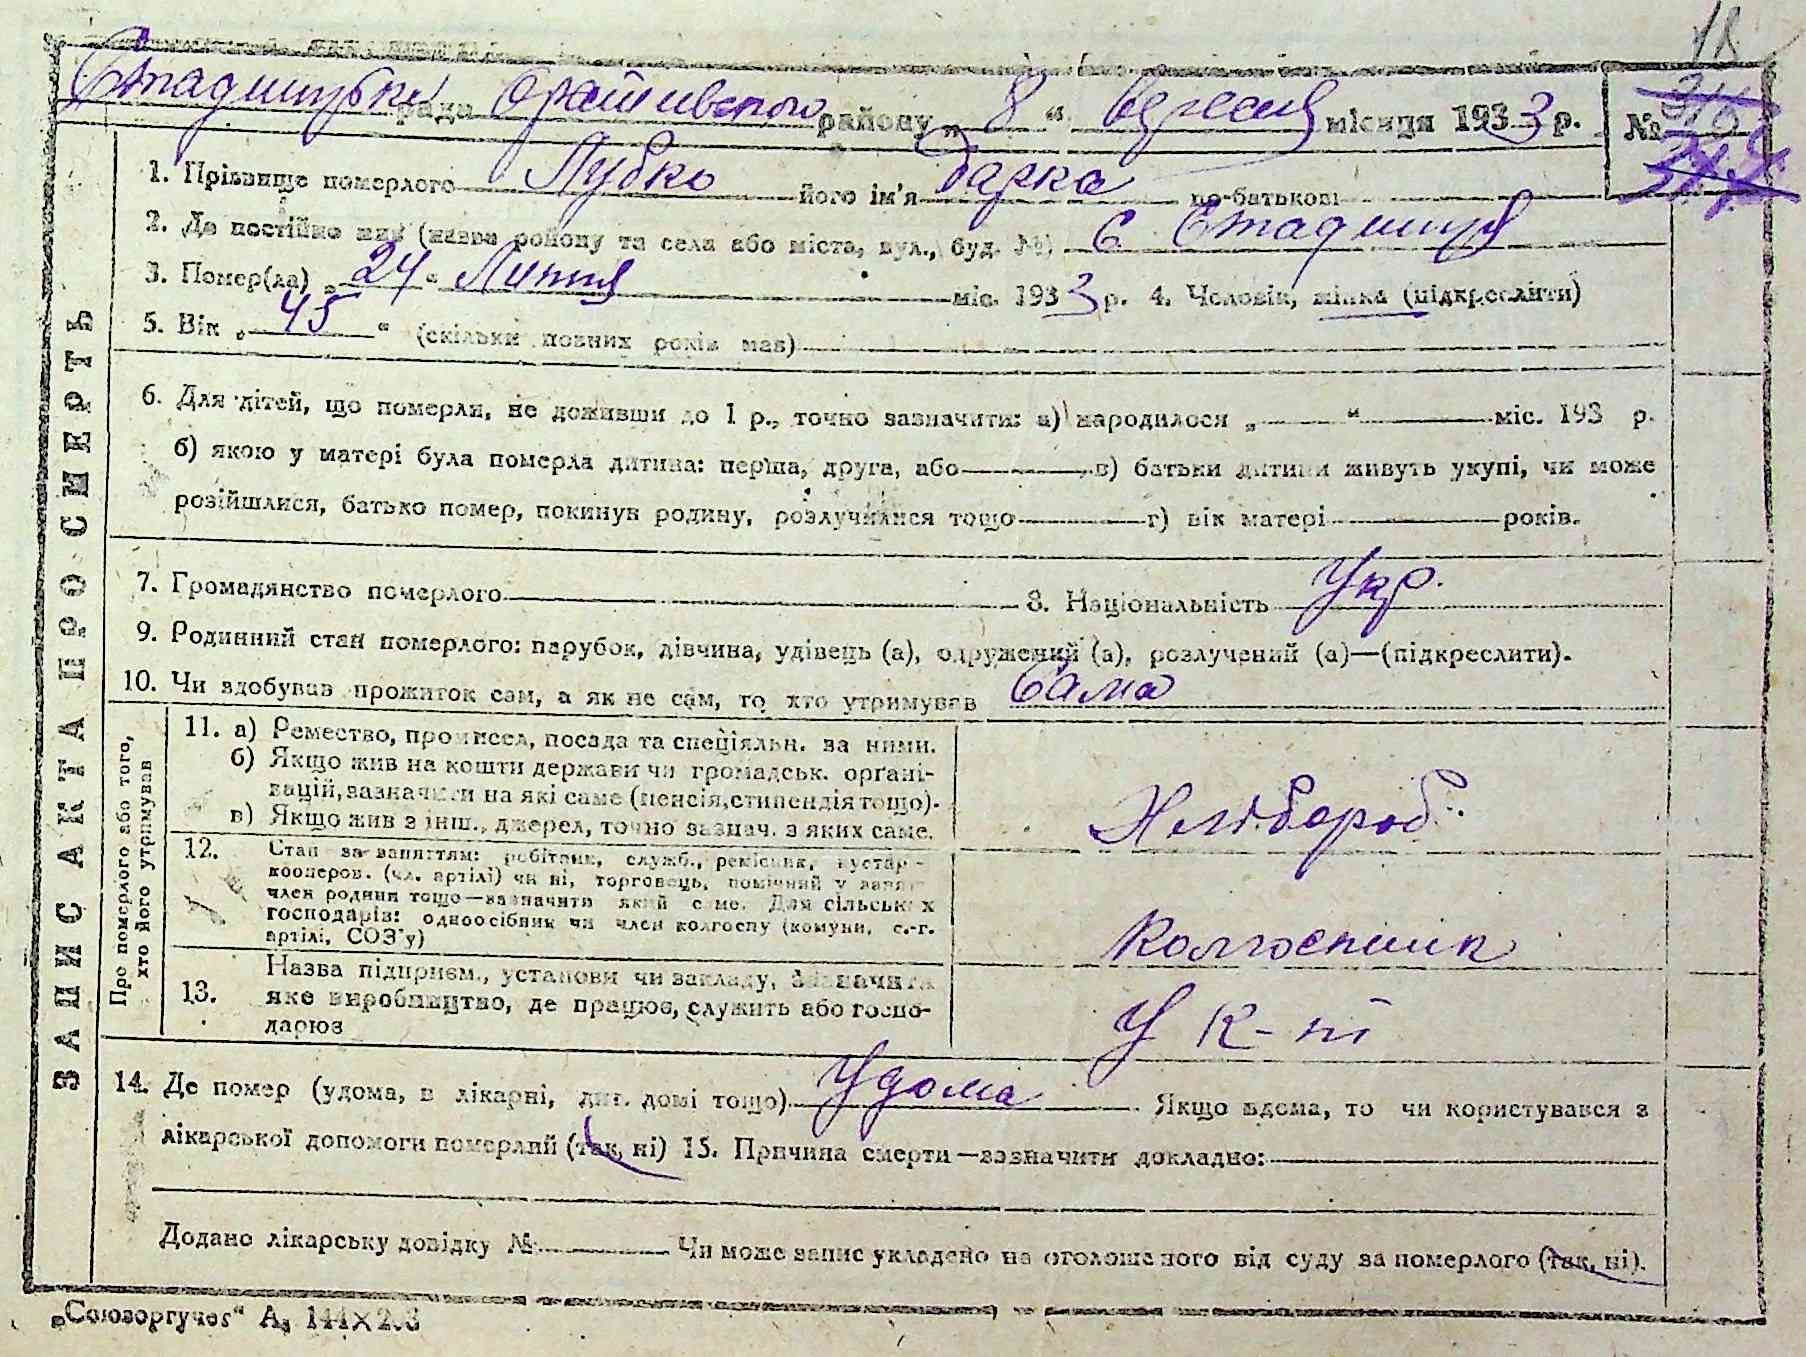 18
Стадницька рада Оратівського району „ 8 “ вересня місяця 1933 р. №
1. Прізвище померлого Лубко його ім'я Варка по-батькові
2. Де постійно жив (назва району та села або міста, вул., буд. №) с Стадниця
3. Помер(ла) „ 24 “ Липня міс. 1933 р. 4. Чоловік, жінка (підкреслити)
5. Вік „ 45 “ (скільки повних років мав)
6. Для дітей, що померли, не доживши до 1 р., точно зазначити: а) народилося „ “ міс. 193 р.
б) якою у матері була померла дитина: перша, друга, або , в) батьки дитини живуть укупі, чи може
розійшлися, батько помер, покинув родину, розлучилися тощо г) вік матері років.
7. Громадянство померлого 8. Національність Укр.
9. Родинний стан померлого: парубок, дівчина, удівець (а), одружений (а), розлучений (а)—(підкреслити).
10. Чи здобував прожиток сам, а як не сам, то хто утримував Сама
ЗАПИС АКТА ПРО СМЕРТЬ
Про померлого або того, хто його утримував
11. а) Ремество, промисел, посада та спеціяльн. за ними.
б) Якщо жив на кошти держави чи громадськ. органі-
зацій, зазначити на які саме (пенсія, стипендія тощо).
в) Якщо жив з інш., джерел, точно зазнач. з яких саме.
Хліборob
12. Стан за заняттям: робітник, служб., ремісник, кустар-
кооперов. (чл. артілі) чи ні, торговець, помічний у занят.
член родини тощо—зазначити який саме. Для сільських
господарів: одноосібник чи член колгоспу (комуни, с.-г.
артілі, СОЗ'у)
Колгоспник
13. Назва підприєм., установи чи закладу, зазначити
яке виробництво, де працює, служить або госпо-
дарює
У к-пі
14. Де помер (удома, в лікарні, дит. домі тощо) Удома Якщо вдома, то чи користувався з
лікарської допомоги померлий (так, ні) 15. Причина смерти—зазначити докладно:
Додано лікарську довідку № Чи може запис укладено на оголошеного від суду за померлого (так, ні).
„Союзоргучет“ А₅ 144×203